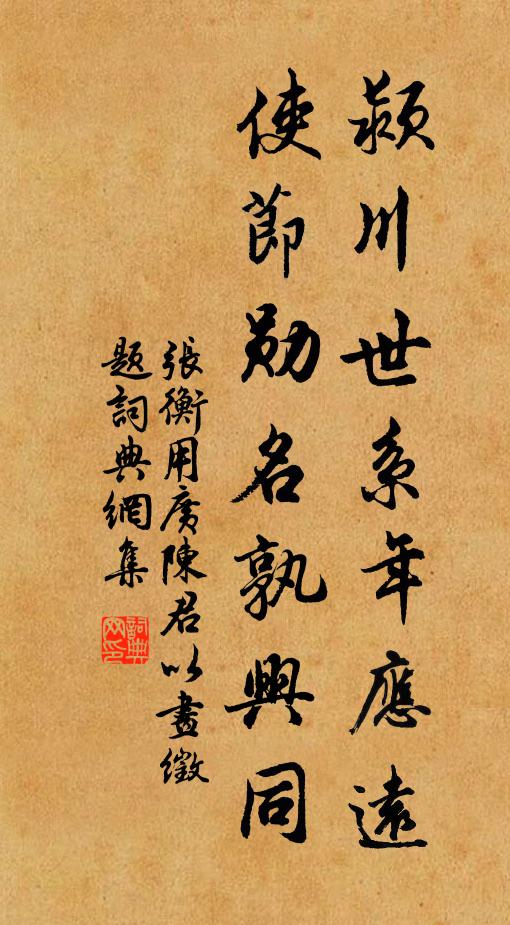 潁川世系年應遠
使節勛名孰與同
張衡用廣陳君以畫徵
題詞典網集
詞典
网印